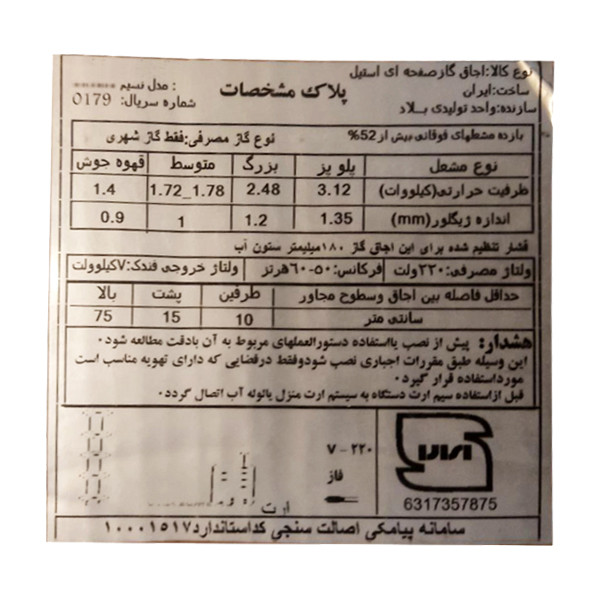 نوع کالا:اجاق گازصفحه ای استیل
ساخت:ایران
سازنده:واحد تولیدی بلاد
پلاک مشخصات
مدل نسیم :
شماره سریال: 0179
بازده مشعلهای فوقانی بیش از 52% نوع گاز مصرفی:فقط گاز شهری
نوع مشعل پلو پز بزرگ متوسط قهوه جوش
ظرفیت حرارتی(کیلووات) 3.12 2.48 1.72_1.78 1.4
اندازه ژیگلور(mm) 1.35 1.2 1 0.9
فشار تنظیم شده برای این اجاق گاز ۱۸۰میلیمتر ستون آب
ولتاژ مصرفی:۲۲۰ولت فرکانس:۵۰-۶۰هرتز ولتاژ خروجی فندک:۷کیلوولت
حداقل فاصله بین اجاق وسطوح مجاور طرفین پشت بالا
سانتی متر 10 15 75
هشدار: پیش از نصب یااستفاده دستورالعملهای مربوط به آن بادقت مطالعه شود۰
این وسیله طبق مقررات اجباری نصب شودوفقط درفضایی که دارای تهویه مناسب است
مورداستفاده قرار گیرد۰
قبل ازاستفاده سیم ارت دستگاه به سیستم ارت منزل یالوله آب اتصال گردد۰
۲۲۰ - V
فاز
ارت
6317357875
سامانه پیامکی اصالت سنجی کداستاندارد۱۰۰۰۱۵۱۷